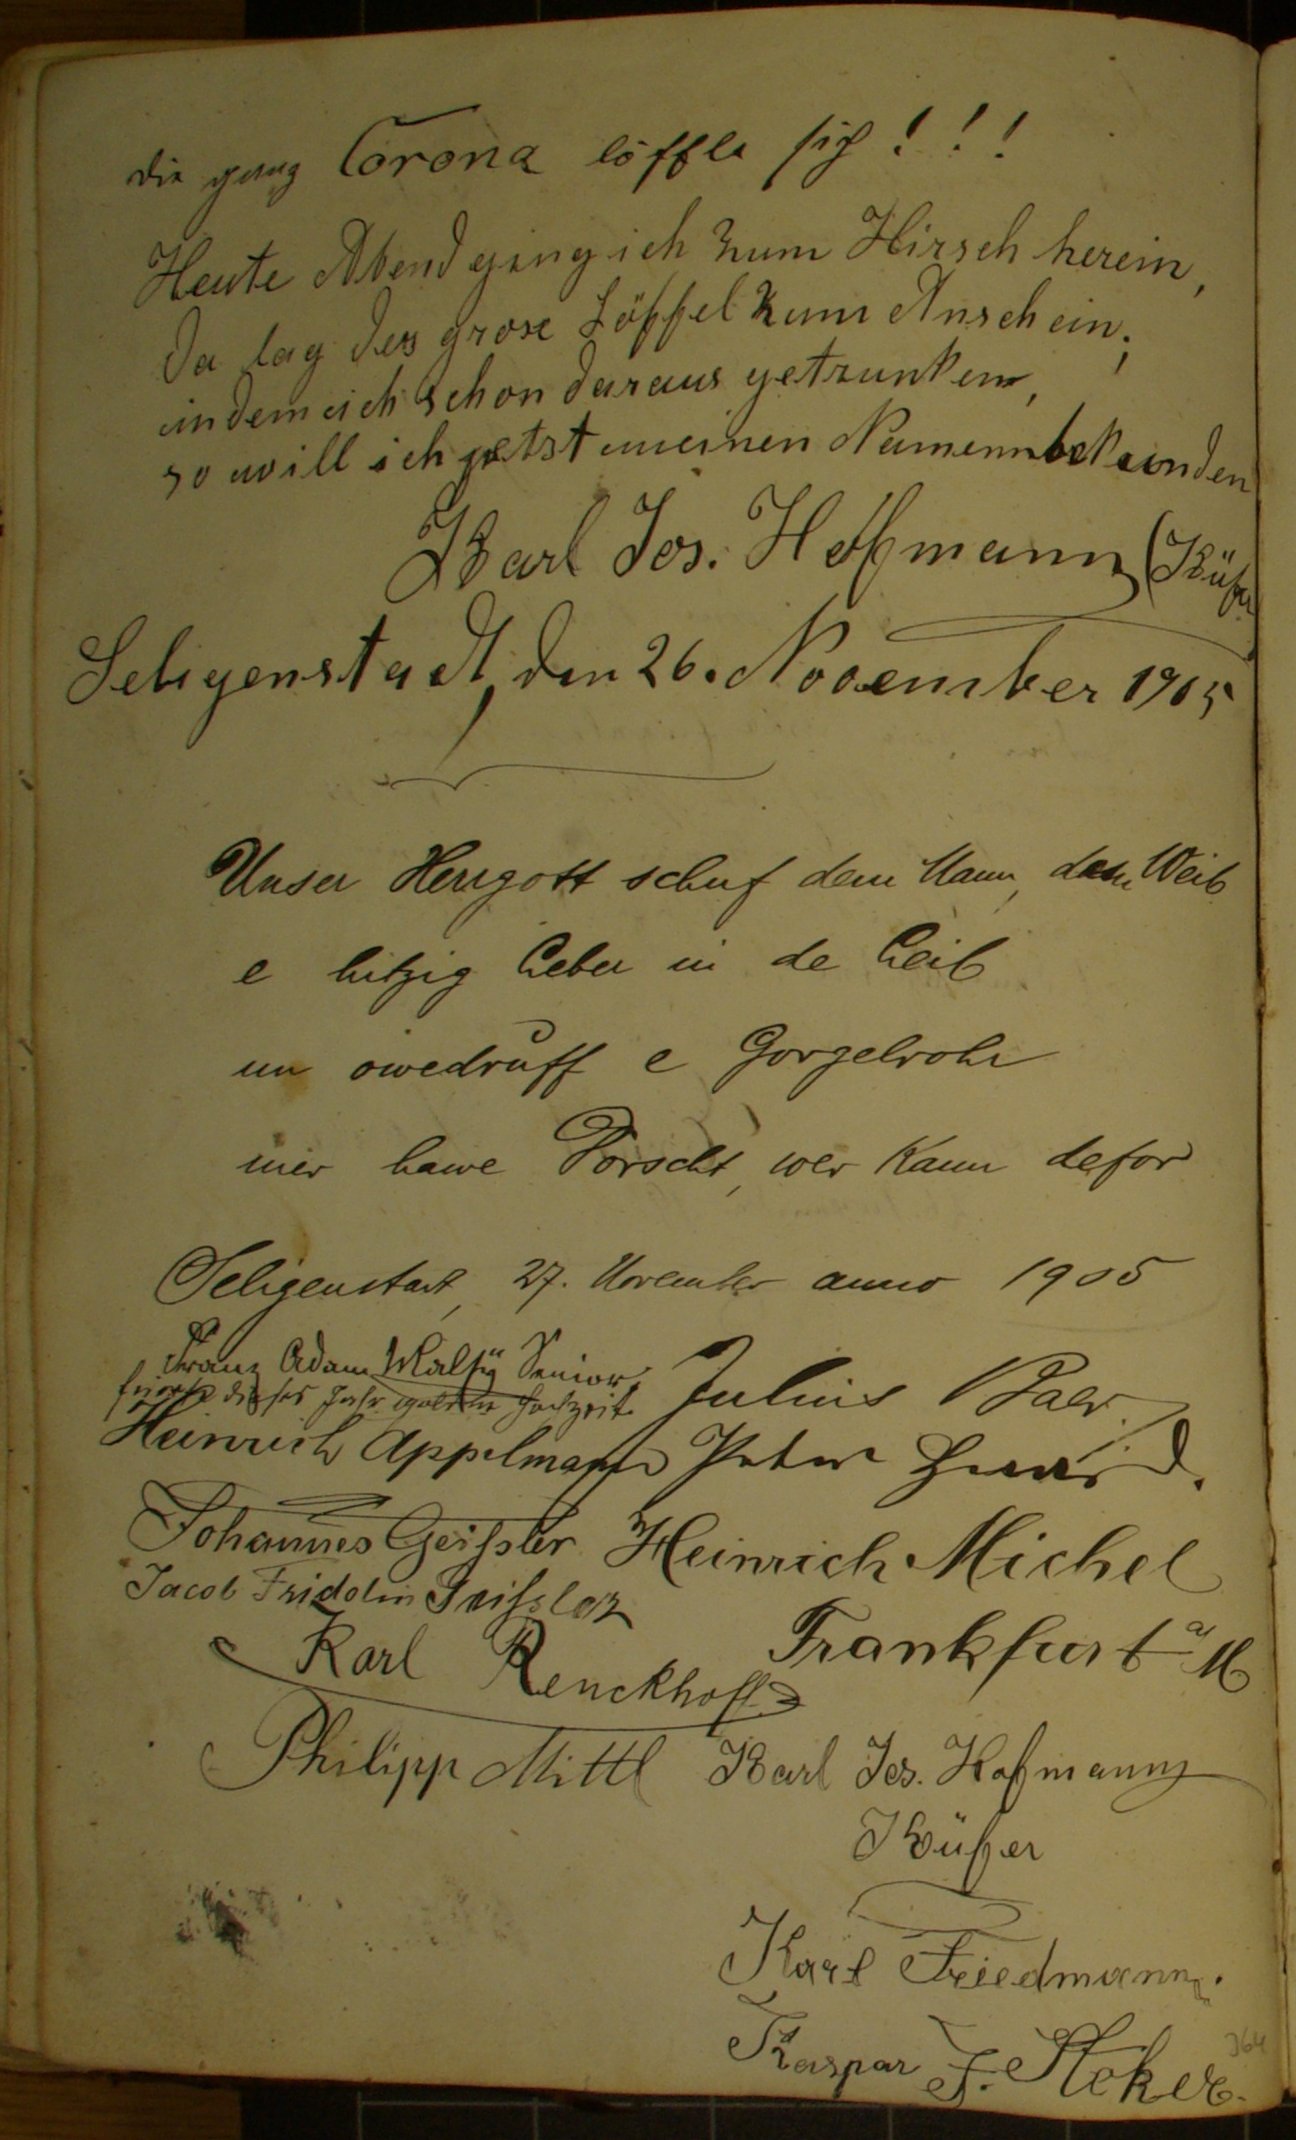 die ganz Corona löffle sich!!!
Heute Abend ging ich zum Hirsch herein,
da lag der grose Löffel zum Anschein;
indem ich schon daraus getrunken,
so will ich jetst meinen Namenn bekunden
Karl Jos. Hofmann (Küfer
Seligenstadt, den 26. November 1905
Unser Herrgott schuf dem Mann, dem Weib
e hitzig Leber in de Leib
un owedruff e Gorgelrohr
mer hawe Dorscht, wer kann defor
Seligenstadt, 27. November anno 1905
Franz Adam Senior,
feierte dieses Jahr goldene Hochzeit.
Julius Baer
Heinrich Appelmann Peter
Johannes Geissler Heinrich Michel
Jacob Fridolin Geissler
Frankfurt a/M
Karl Renckhoff
Philipp Mittl Karl Jos. Hofmann
Küfer
Karl Friedmann.
Kaspar F. Stoker.
364